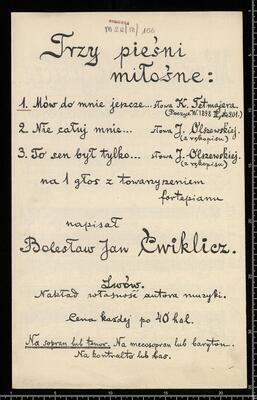 M 28/18/166
Trzy pieśni
miłośne:
1. Mów do mnie jeszcze... słowa K. Tetmajera.
(Poezye W. 1898 III, str. 201.)
2. Nie całuj mnie... słowa J. Olszewskiej.
(z rękopisu)
3. To sen był tylko... słowa J. Olszewskiej.
(z rękopisu)
na 1 głos z towarzyszeniem
fortepianu
napisał
Bolesław Jan Ćwiklicz.
Lwów.
Nakład własność autora muzyki.
Cena każdej po 40 hal.
Na sopran lub tenor. Na mecosopran lub baryton.
Na kontralto lub bas.